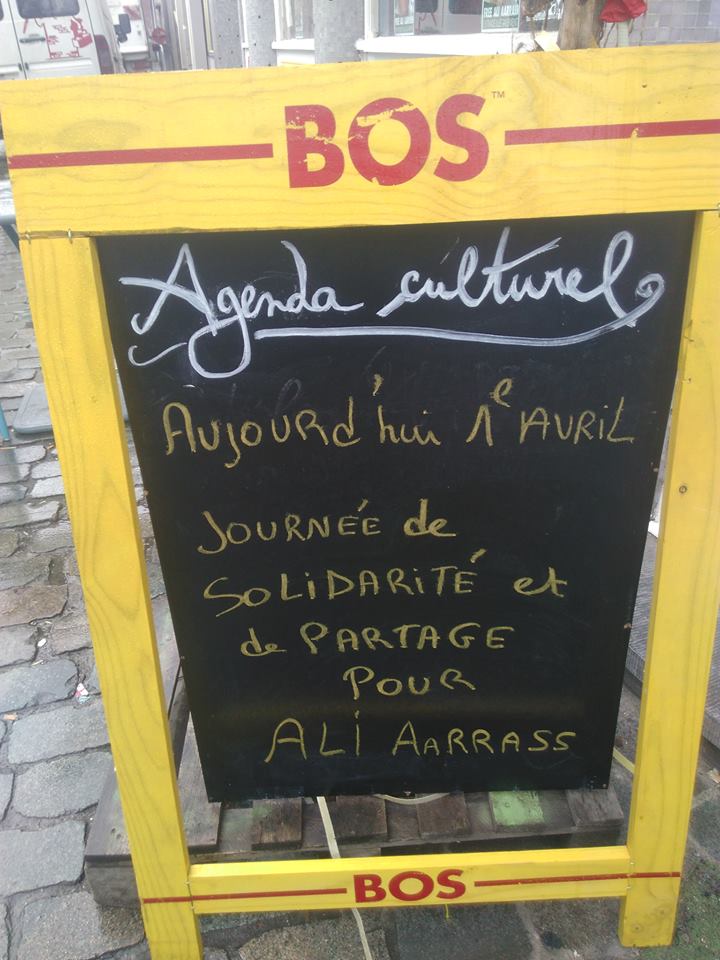 FREE ALI AARRASS
BOS™
Agenda culturel
Aujourd'hui 1e AVRIL
JOURNÉE de
SOLIDARITÉ et
de PARTAGE
POUR
ALI AARRASS
BOS